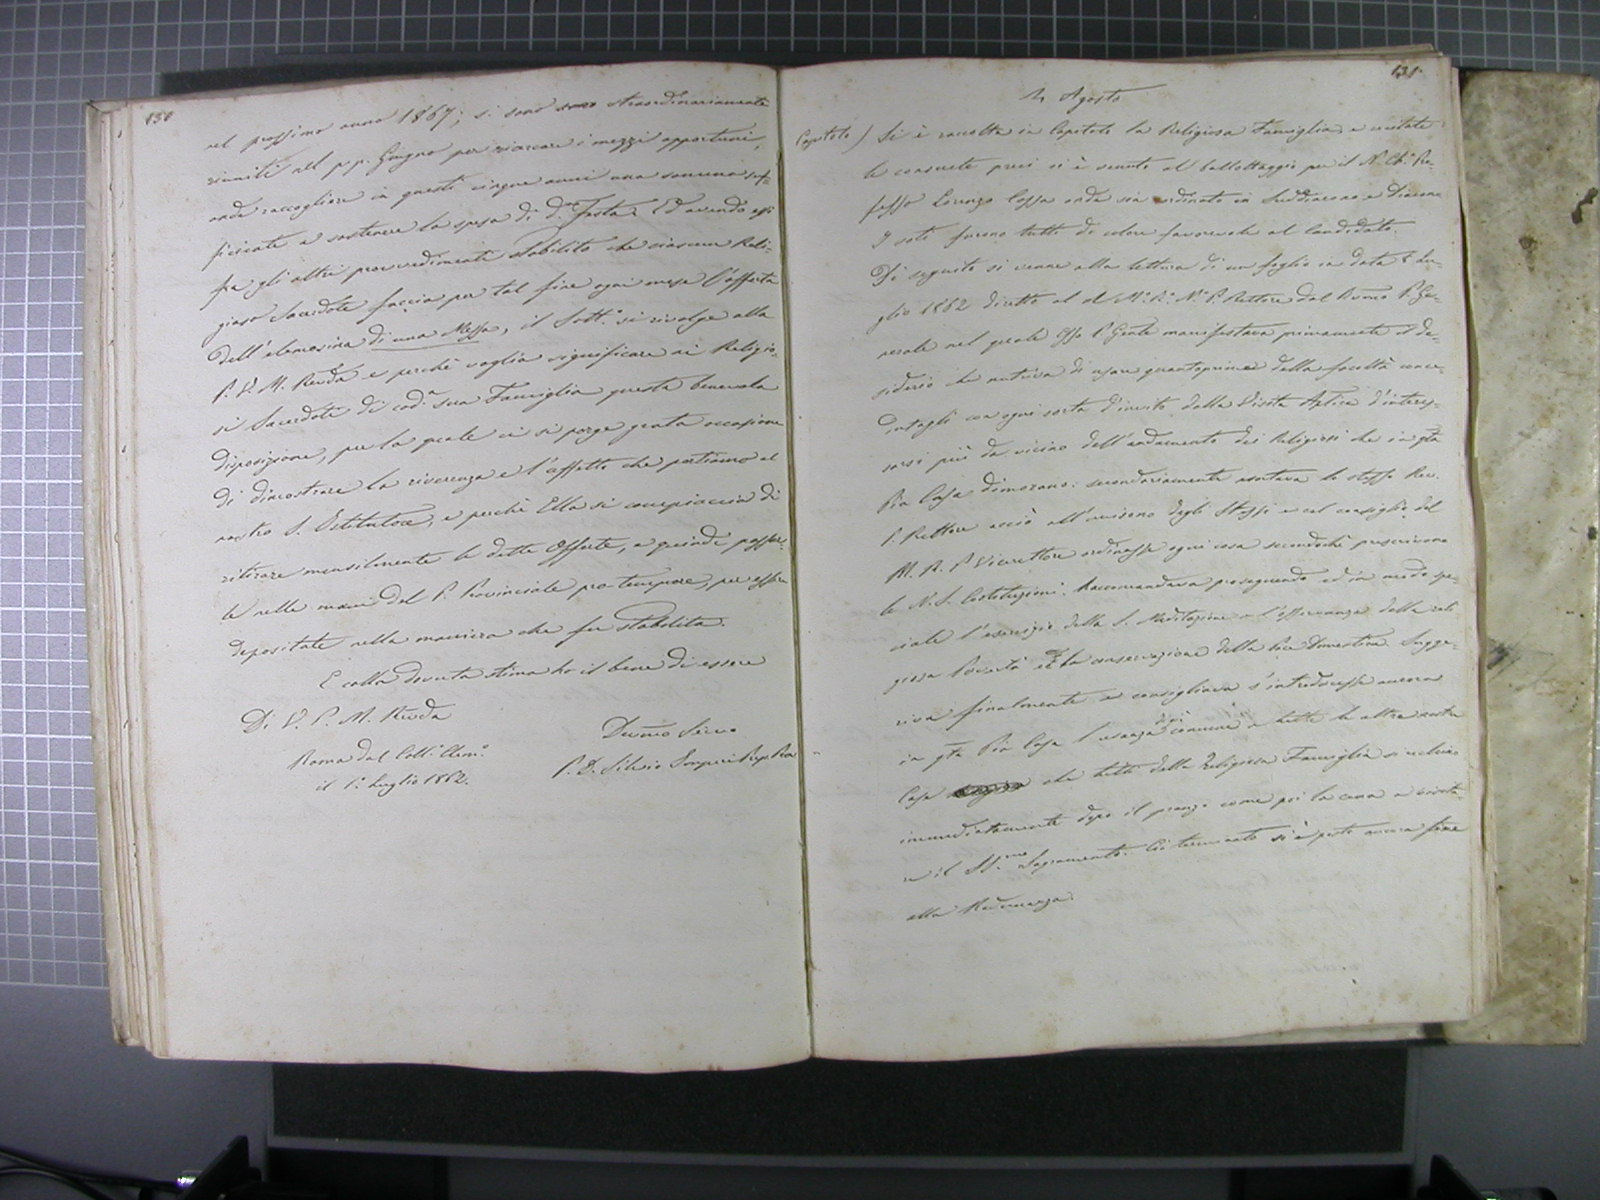 131
nel prossimo anno 1867; si sono straordinariamente
riuniti nel p. p. Giugno per ricercare i mezzi opportuni,
onde raccogliere in questi cinque anni una somma suf-
ficiente a sostenere la spesa di d.ª Festa. Ed avendo essi
fra gli altri provvedimenti stabilito che ciascun Reli-
gioso Sacerdote faccia per tal fine ogni mese l'offerta
dell'elemosina di una Messa, il Sott.º si rivolge alla
P. V. M. Rev̅da e perchè voglia significare ai Religio-
si Sacerdoti di cod.ª sua Famiglia questa benevola
disposizione, per la quale ci si porge grata occasione
di dimostrare la riverenza e l'affetto che portiamo al
nostro S. Istitutore, e perchè Ella si compiaccia di
ritirare mensilmente le dette offerte, e quindi passar-
le nelle mani del P. Provinciale pro tempore, per esser
depositate nella maniera che fu stabilita.
E colla dovuta stima ho il bene di essere
Di V. P. M. Rev̅da
Devmo Servo
Roma dal Coll.º Clem.º
il 1.º Luglio 1862.
P. D. Silvio
131.
4 Agosto
Capitolo) Si è raccolta in Capitolo la Religiosa Famiglia, e recitate
le consuete preci si è venuto al ballottaggio per il N. Ch.º Pro-
fesso Lorenzo Cossa onde sia ordinato in Suddiacono e Diacono
I voti furono tutti di colore favorevole al Candidato.
Di seguito si venne alla lettura di un foglio in data Lu-
glio 1862 diretto al M.º R.º N.º P. Rettore dal Rvmo P. Ge-
nerale nel quale Esso P. Gn̅le manifestava primamente il de-
siderio che nutriva di usare quantoprima della facoltà conce-
dutagli con ogni sorta d'invito dalla Visita Aplica d'interes-
sarsi più da vicino dell'andamento dei Religiosi che in qta
Pia Casa dimorano: secondariamente esortava lo stesso Rev.
P. Rettore acciò all'unisono degli Stessi e col consiglio del
M. R. P. Vicerettore ordinasse ogni cosa secondochè prescrivono
le N. S. Costituzioni. Raccomandava proseguendo ed in modo spe-
ciale l'esercizio della S. Meditazione e l'osservanza della reli
giosa Povertà e la conservazione della Pace domestica. Sugge-
riva finalmente e consigliava s'introducesse ancora
in qta Pia Casa l'usanza comune a tutte le altre nostre
Case che tutta della Religiosa Famiglia si rechino
immediatamente dopo il pranzo come poi la cena a visita-
re il SS.mo Sagramento. Ciò terminato si è posto ancora fine
alla Adunanza.